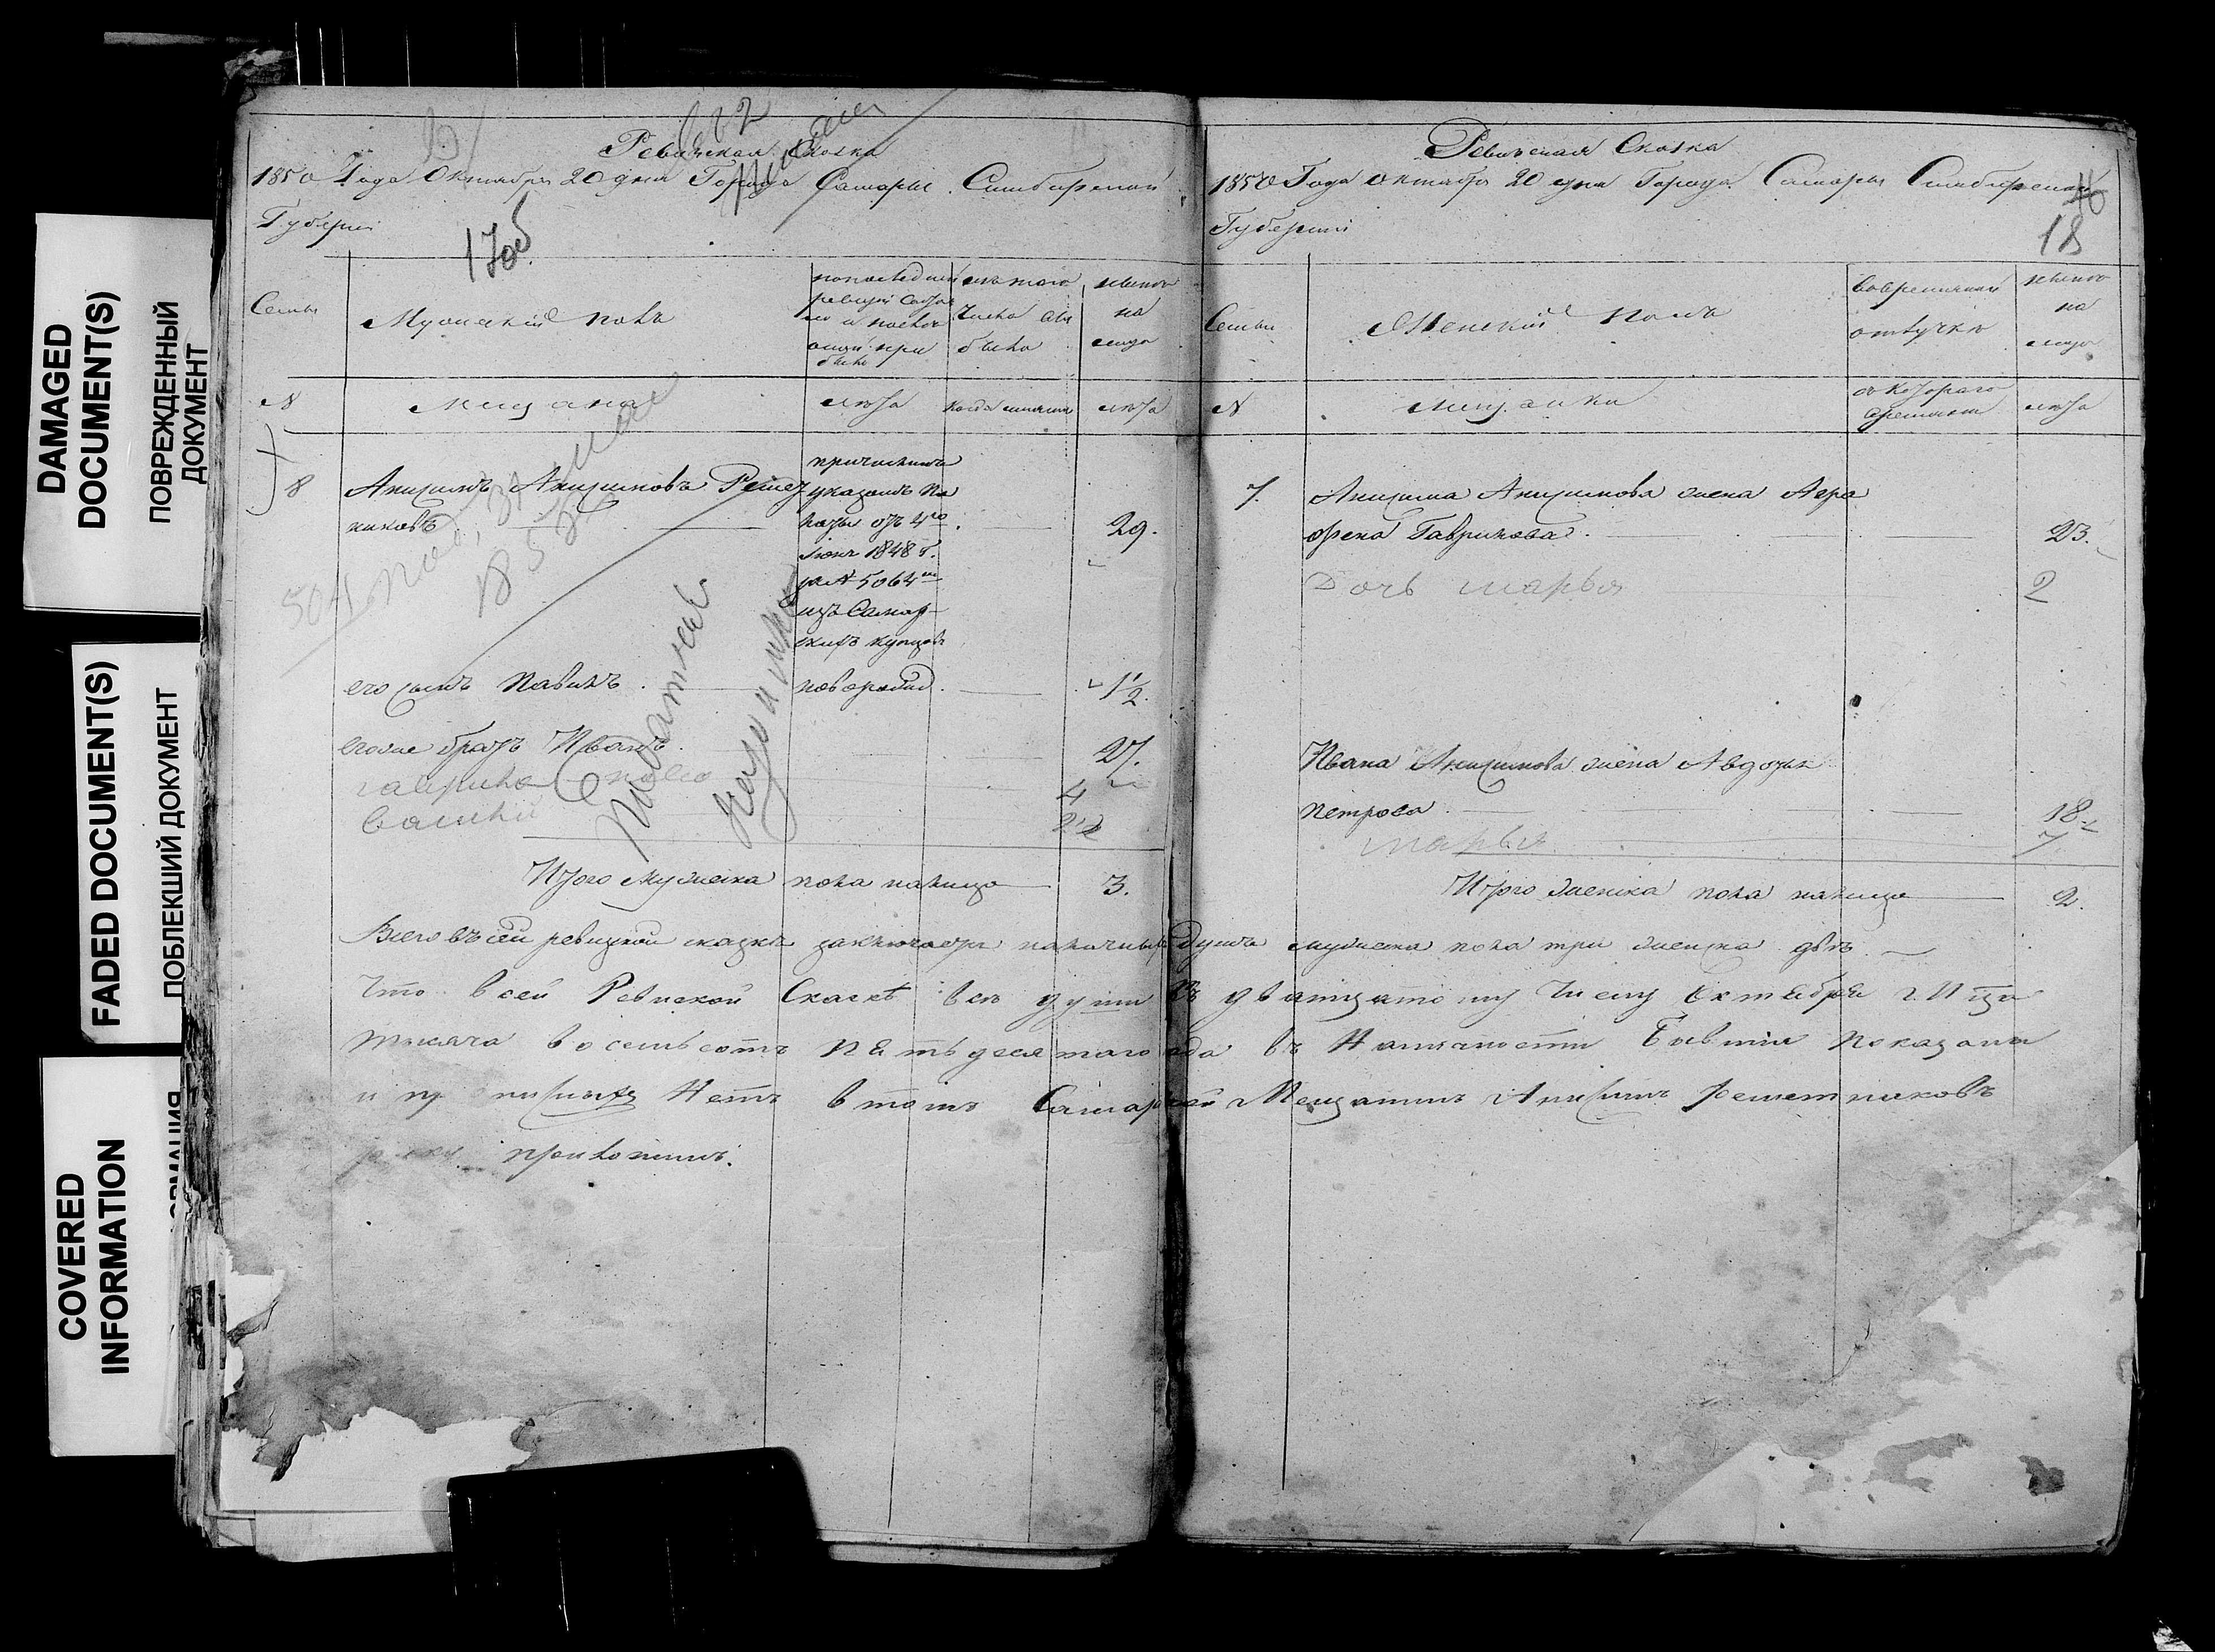 DAMAGED
DOCUMENT(S)
ПОВРЕЖДЕННЫЙ
ДОКУМЕНТ
FADED DOCUMENT(S)
ПОБЛЕКШИЙ ДОКУМЕНТ
COVERED
INFORMATION
Ревизская Сказка
1850 Года Октября 20 дня Города Самары Симбирской
Губернии
17об.
Семьи
Мужеский полъ
по последней
ревизіи состоя
ло и после
оной при
было
изъ того
числа вы
было
ныне
на
лицо
N
Мещане
лета
когда именно
лета
8
Анисимъ Анисимовъ Решет
никовъ
29.
причисленъ
указомъ Па
латы отъ 4го
Іюня 1848 г.
за N 5064м
изъ Самар
скихъ купцовъ
его сынъ Павилъ
новорожд.
1/2.
его же братъ Иванъ
27.
4
2
Итого мужеска пола налицо 3.
Ревизская Сказка
1850 Года Октября 20 дня Города Самары Симбирской
Губерніи
18
Семьи
Женский полъ
во временной
отлучке
ныне
на
лицо
N
мещанки
съ котораго
времени
лета
7.
Анисима Анисимова жена Авра
фена Гаврилова
23.
Дочь марья
2
Ивана Анисимова жена Авдотья
петрова
18
марья
7
Итого женска пола налицо 2.
Всего въ сей ревизкой сказке заключается наличныхъ Душъ мужеска пола три женска две
Что в сей Ревиской Скаске все души Къ дватцатому Числу Октября
тысяча восемьсотъ пятьдесятаго года въ Наличности Бывшия показаны
и Нетъ в томъ Самарской Мещанинъ Анисимъ решетниковъ
руку приложилъ.